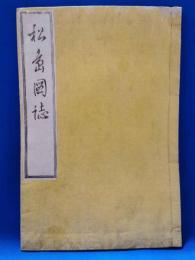 松島圖誌